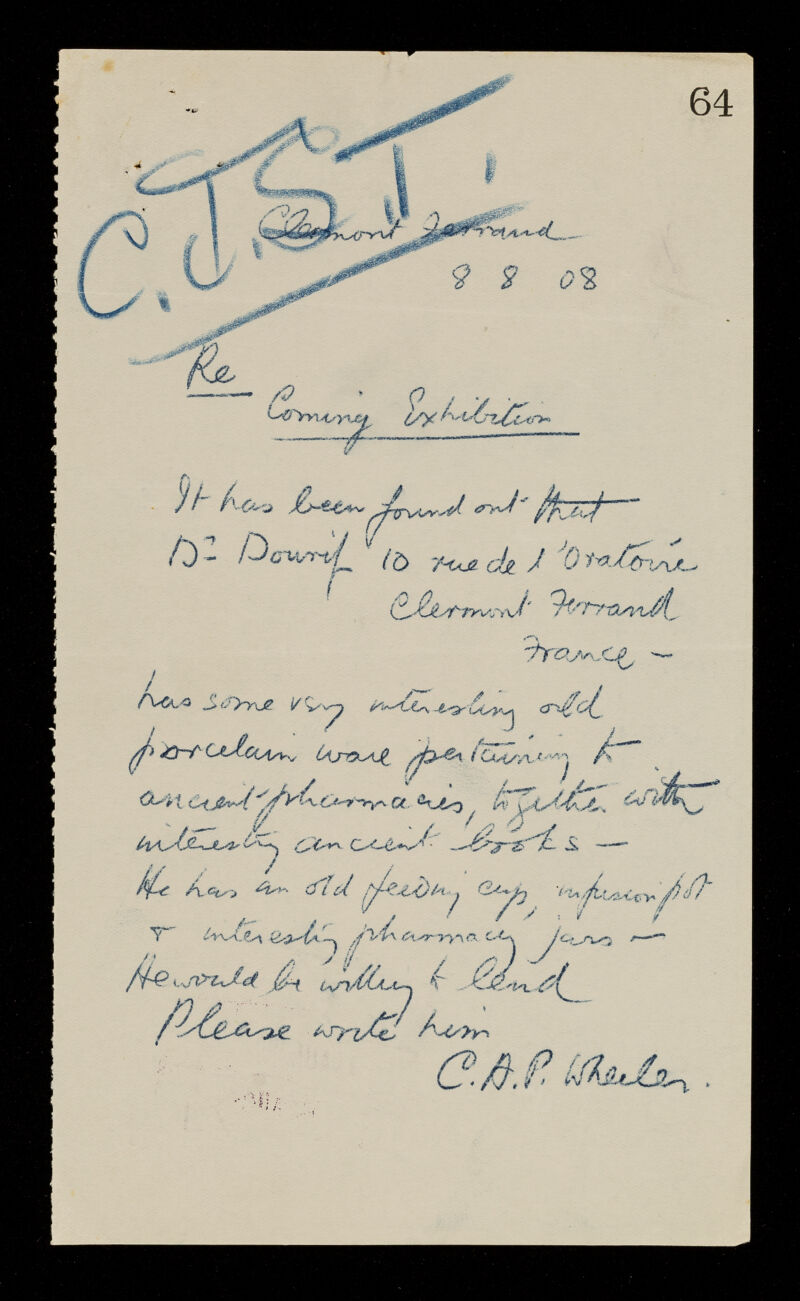 64
C.J.S.T.
Clermont Ferrand
8 8 08
Re
Coming Exhibition
It has been found out that
Dr Dourif 10 rue de l'Oratoire
Clermont Ferrand
France —
has some very interesting old
porcelain ware pertaining to
ancient pharmacies, together with
interesting ancient books —
He has an old feeding cup, infusion pot
& interesting pharmacy jars —
He would be willing to lend
Please write him
C.A.P. Wheeler.